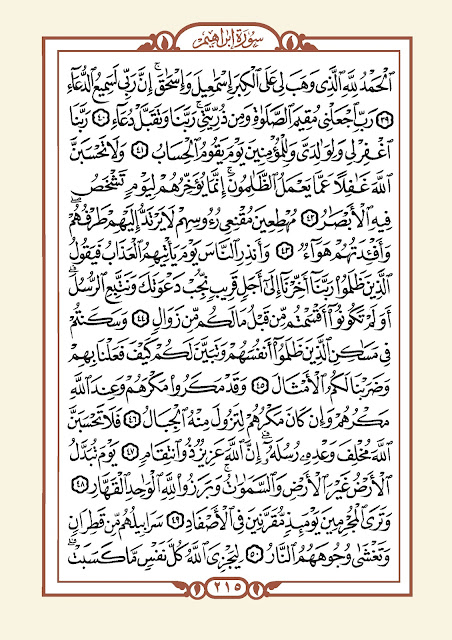 سورة إبراهيم
ٱلْحَمْدُ لِلَّهِ ٱلَّذِى وَهَبَ لِى عَلَى ٱلْكِبَرِ إِسْمَٰعِيلَ وَإِسْحَٰقَ ۚ إِنَّ رَبِّى لَسَمِيعُ ٱلدُّعَآءِ
٣٩ رَبِّ ٱجْعَلْنِى مُقِيمَ ٱلصَّلَوٰةِ وَمِن ذُرِّيَّتِى ۚ رَبَّنَا وَتَقَبَّلْ دُعَآءِ ٤٠ رَبَّنَا
ٱغْفِرْ لِى وَلِوَٰلِدَىَّ وَلِلْمُؤْمِنِينَ يَوْمَ يَقُومُ ٱلْحِسَابُ ٤١ وَلَا تَحْسَبَنَّ
ٱللَّهَ غَٰفِلًا عَمَّا يَعْمَلُ ٱلظَّٰلِمُونَ ۚ إِنَّمَا يُؤَخِّرُهُمْ لِيَوْمٍ تَشْخَصُ
فِيهِ ٱلْأَبْصَٰرُ ٤٢ مُهْطِعِينَ مُقْنِعِى رُءُوسِهِمْ لَا يَرْتَدُّ إِلَيْهِمْ طَرْفُهُمْ ۖ
وَأَفْـِٔدَتُهُمْ هَوَآءٌ ٤٣ وَأَنذِرِ ٱلنَّاسَ يَوْمَ يَأْتِيهِمُ ٱلْعَذَابُ فَيَقُولُ
ٱلَّذِينَ ظَلَمُوا۟ رَبَّنَآ أَخِّرْنَآ إِلَىٰٓ أَجَلٍ قَرِيبٍ نُّجِبْ دَعْوَتَكَ وَنَتَّبِعِ ٱلرُّسُلَ ۗ
أَوَلَمْ تَكُونُوٓا۟ أَقْسَمْتُم مِّن قَبْلُ مَا لَكُم مِّن زَوَالٍ ٤٤ وَسَكَنتُمْ
فِى مَسَٰكِنِ ٱلَّذِينَ ظَلَمُوٓا۟ أَنفُسَهُمْ وَتَبَيَّنَ لَكُمْ كَيْفَ فَعَلْنَا بِهِمْ
وَضَرَبْنَا لَكُمُ ٱلْأَمْثَالَ ٤٥ وَقَدْ مَكَرُوا۟ مَكْرَهُمْ وَعِندَ ٱللَّهِ
مَكْرُهُمْ وَإِن كَانَ مَكْرُهُمْ لِتَزُولَ مِنْهُ ٱلْجِبَالُ ٤٦ فَلَا تَحْسَبَنَّ
ٱللَّهَ مُخْلِفَ وَعْدِهِۦ رُسُلَهُۥٓ ۗ إِنَّ ٱللَّهَ عَزِيزٌ ذُو ٱنتِقَامٍ ٤٧ يَوْمَ تُبَدَّلُ
ٱلْأَرْضُ غَيْرَ ٱلْأَرْضِ وَٱلسَّمَٰوَٰتُ ۖ وَبَرَزُوا۟ لِلَّهِ ٱلْوَٰحِدِ ٱلْقَهَّارِ ٤٨
وَتَرَى ٱلْمُجْرِمِينَ يَوْمَئِذٍ مُّقَرَّنِينَ فِى ٱلْأَصْفَادِ ٤٩ سَرَابِيلُهُم مِّن قَطِرَانٍ
وَتَغْشَىٰ وُجُوهَهُمُ ٱلنَّارُ ٥٠ لِيَجْزِىَ ٱللَّهُ كُلَّ نَفْسٍ مَّا كَسَبَتْ ۚ
٢١٥